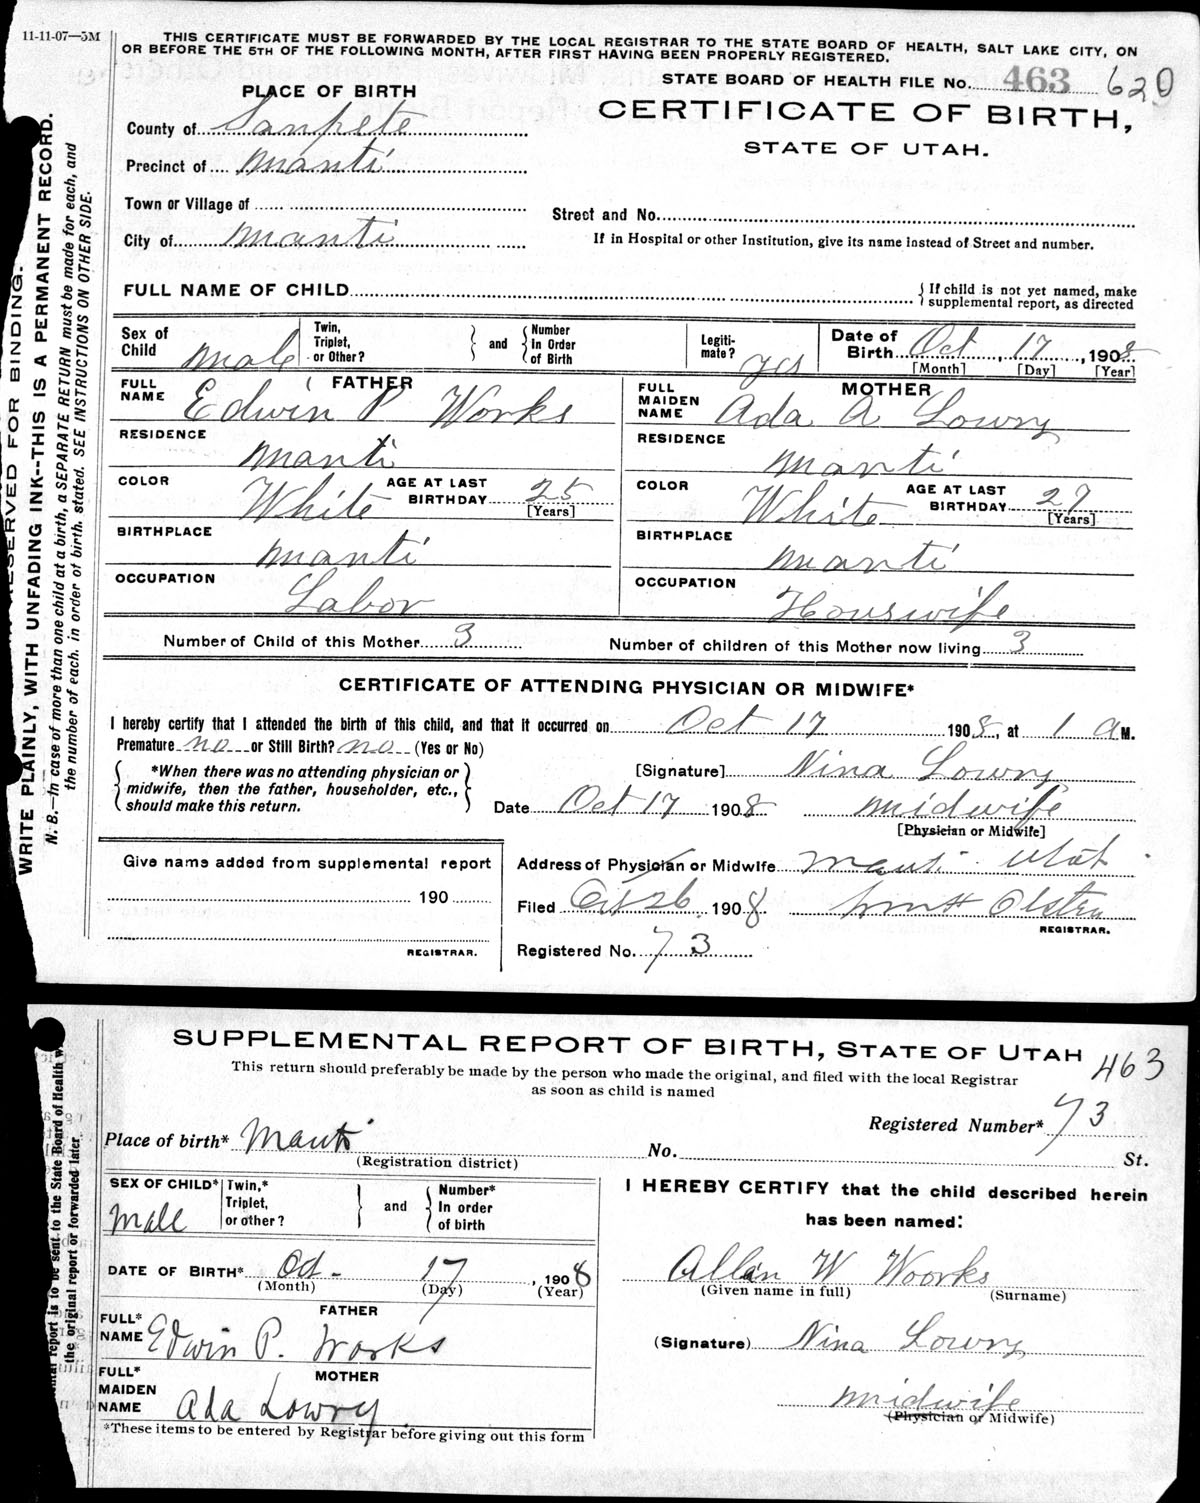 11-11-07—5M
THIS CERTIFICATE MUST BE FORWARDED BY THE LOCAL REGISTRAR TO THE STATE BOARD OF HEALTH, SALT LAKE CITY, ON
OR BEFORE THE 5TH OF THE FOLLOWING MONTH, AFTER FIRST HAVING BEEN PROPERLY REGISTERED.
STATE BOARD OF HEALTH FILE No. 463 620
PLACE OF BIRTH
CERTIFICATE OF BIRTH,
STATE OF UTAH.
County of Sanpete
Precinct of Manti
Town or Village of
Street and No.
City of Manti
If in Hospital or other Institution, give its name instead of Street and number.
FULL NAME OF CHILD
{ If child is not yet named, make
supplemental report, as directed
Sex of Child Male
Twin, Triplet, or Other?
} and { Number In Order of Birth
Legiti-mate? yes
Date of Birth Oct, 17, 1908
[Month] [Day] [Year]
FATHER
FULL NAME Edwin P Works
MOTHER
FULL MAIDEN NAME Ada A Lowry
RESIDENCE Manti
RESIDENCE Manti
COLOR White AGE AT LAST BIRTHDAY 25 [Years]
COLOR White AGE AT LAST BIRTHDAY 27 [Years]
BIRTHPLACE Manti
BIRTHPLACE Manti
OCCUPATION Labor
OCCUPATION Houswife
Number of Child of this Mother 3 Number of children of this Mother now living 3
CERTIFICATE OF ATTENDING PHYSICIAN OR MIDWIFE*
I hereby certify that I attended the birth of this child, and that it occurred on Oct 17 1908, at 1 a M.
Premature no or Still Birth? no (Yes or No)
{ *When there was no attending physician or
midwife, then the father, householder, etc.,
should make this return. }
[Signature] Nina Lowry
Date Oct 17 1908 midwife
[Physician or Midwife]
Give name added from supplemental report
190
REGISTRAR.
Address of Physician or Midwife Manti Utah
Filed Oct 26, 1908 Wm H
REGISTRAR.
Registered No. 73
RESERVED FOR BINDING.
WRITE PLAINLY, WITH UNFADING INK--THIS IS A PERMANENT RECORD.
N. B.—In case of more than one child at a birth, a SEPARATE RETURN must be made for each, and
the number of each, in order of birth, stated. SEE INSTRUCTIONS ON OTHER SIDE.
SUPPLEMENTAL REPORT OF BIRTH, STATE OF UTAH
463
This return should preferably be made by the person who made the original, and filed with the local Registrar
as soon as child is named
Registered Number* 73
Place of birth* Manti No. St.
(Registration district)
SEX OF CHILD* Male
Twin,* Triplet, or other?
} and { Number* In order of birth
I HEREBY CERTIFY that the child described herein
has been named:
DATE OF BIRTH* Oct- 17, 1908
(Month) (Day) (Year)
Allan W Woorks
(Given name in full) (Surname)
FATHER
FULL* NAME Edwin P. Works
(Signature) Nina Lowry
MOTHER
FULL* MAIDEN NAME Ada Lowry
midwife
(Physician or Midwife)
*These items to be entered by Registrar before giving out this form
report is to be sent to the State Board of Health
the original report or forwarded later